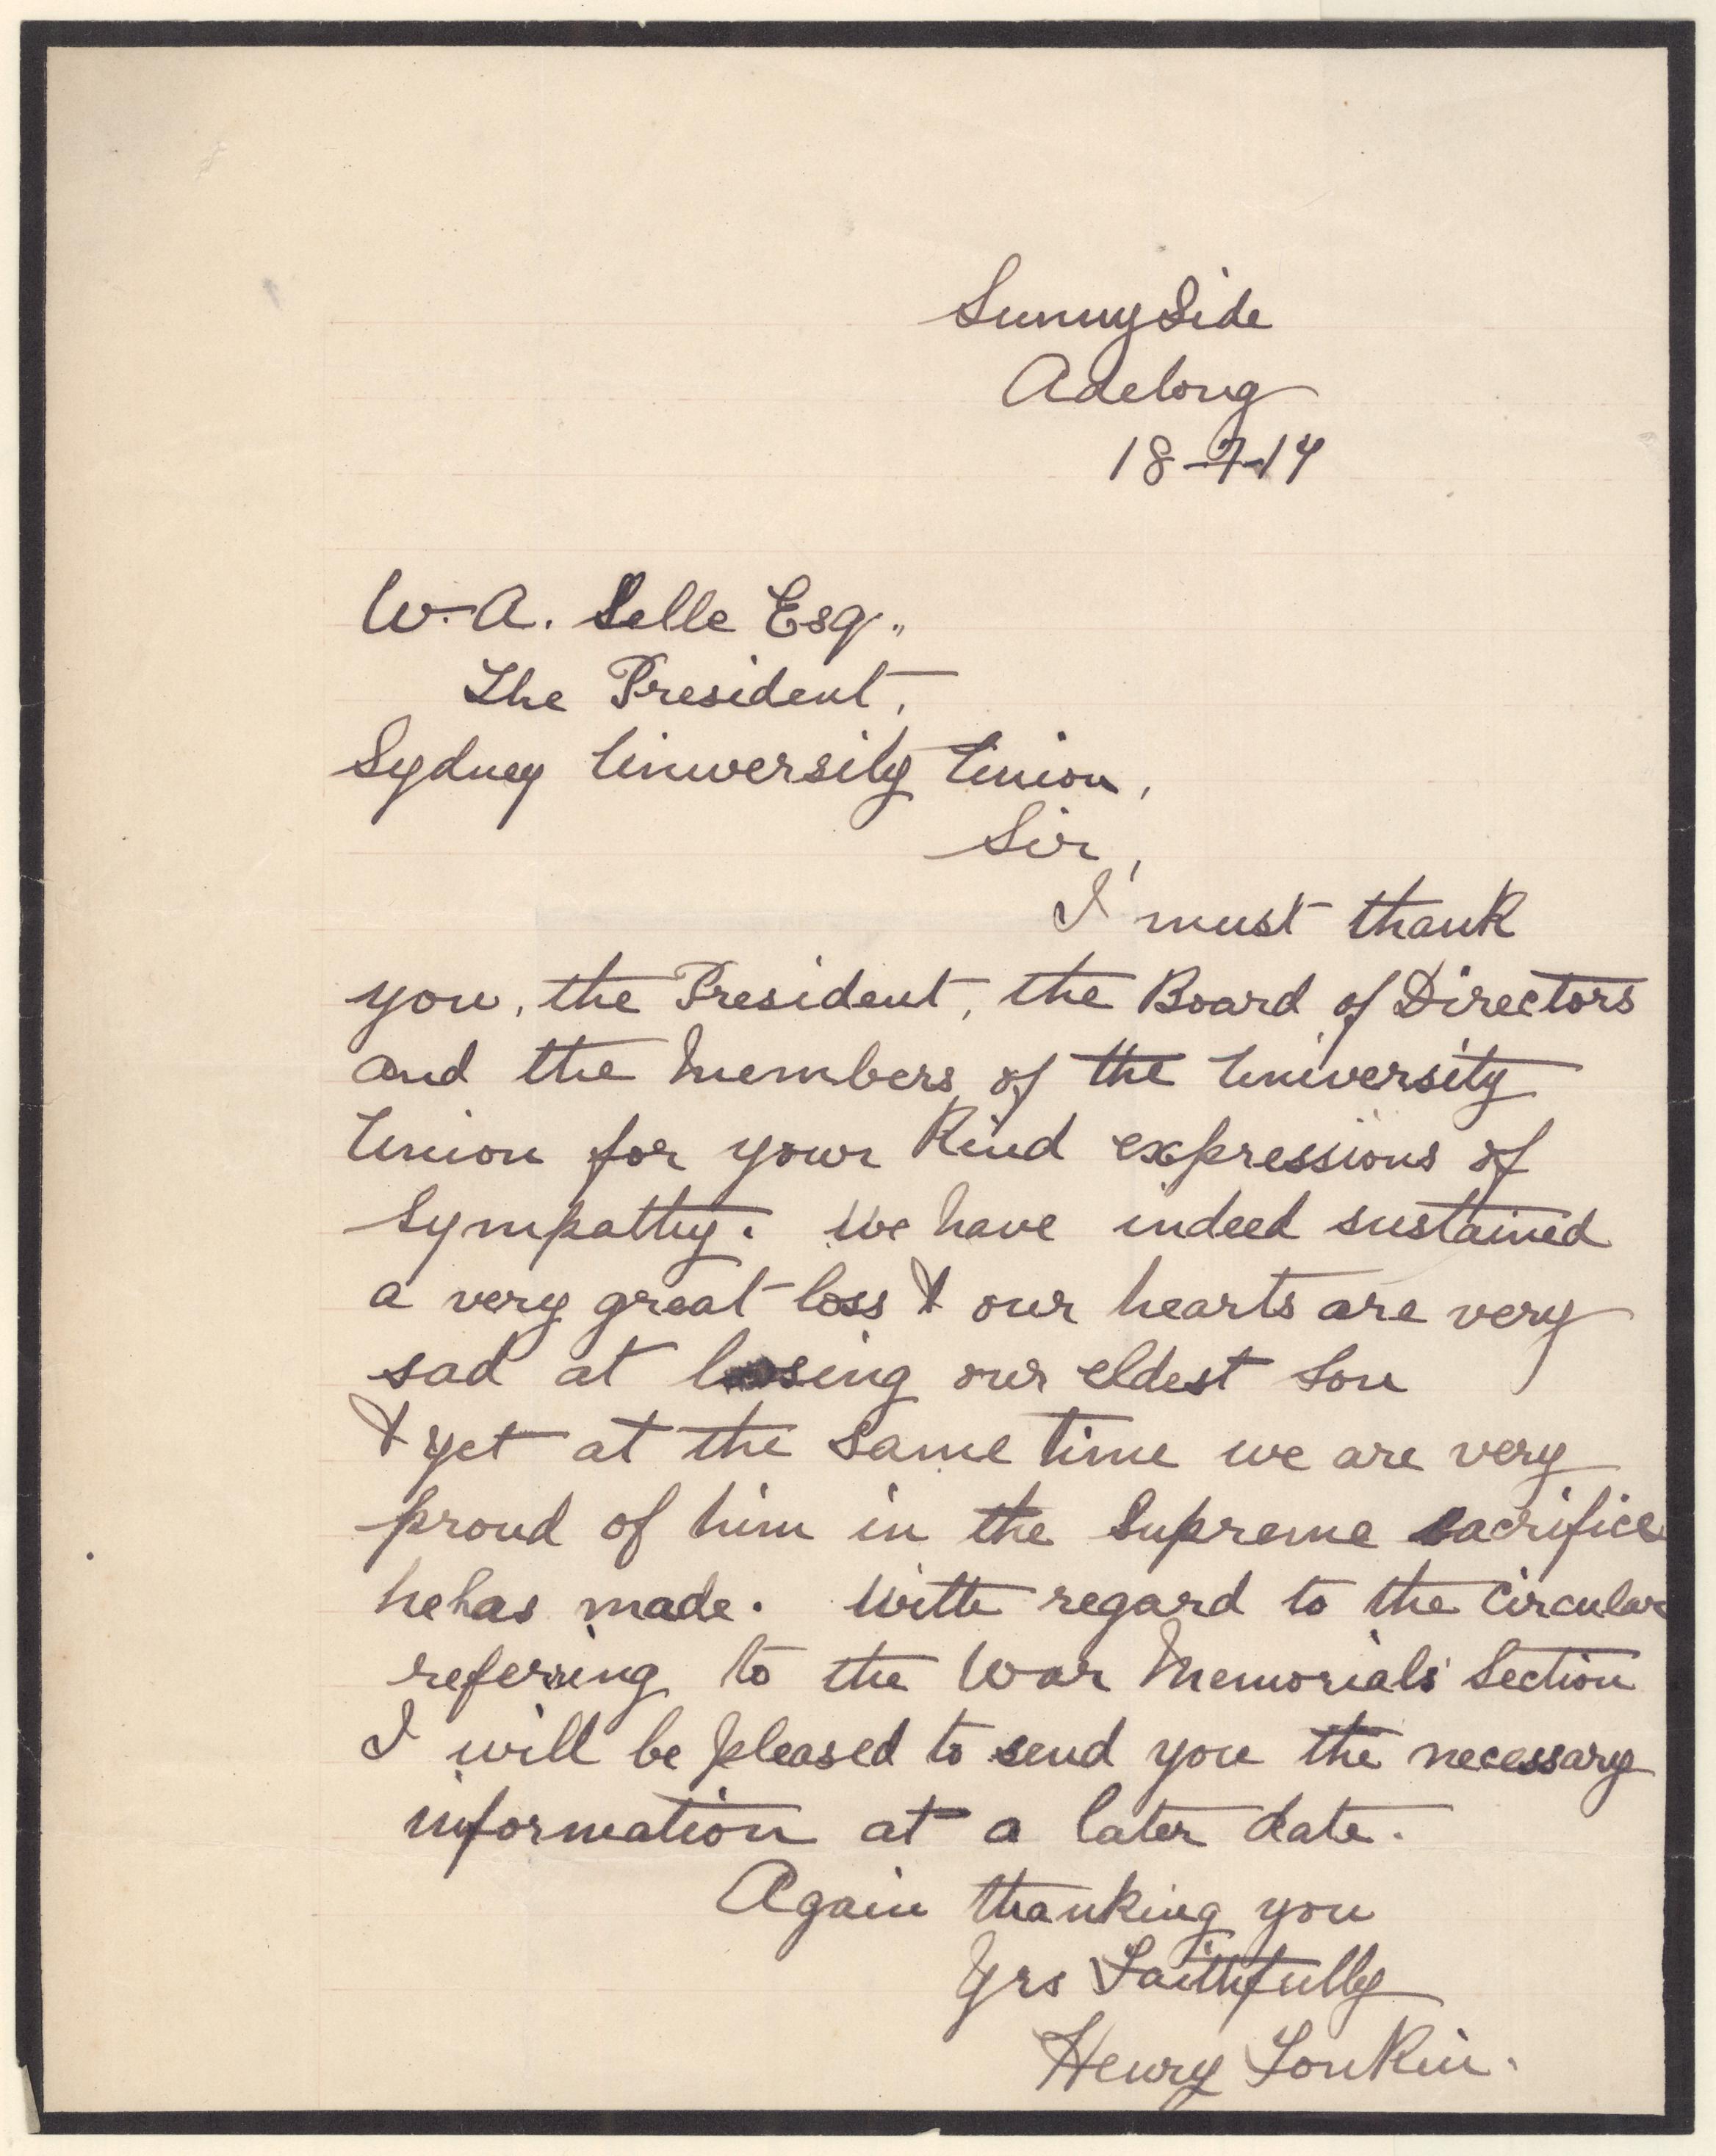 Sunny Side
Adelong
18-7-17
W. A. Selle Esq.,
The President,
Sydney University Union,
Sir,
I must thank
you, the President, the Board of Directors
and the Members of the University
Union for your kind expressions of
Sympathy. We have indeed sustained
a very great loss & our hearts are very
sad at losing our eldest Son
& yet at the same time we are very
proud of him in the Supreme sacrifice
he has made. With regard to the Circular
referring to the War Memorials Section
I will be pleased to send you the necessary
information at a later date.
Again thanking you
Yrs Faithfully
Henry Tonkin.